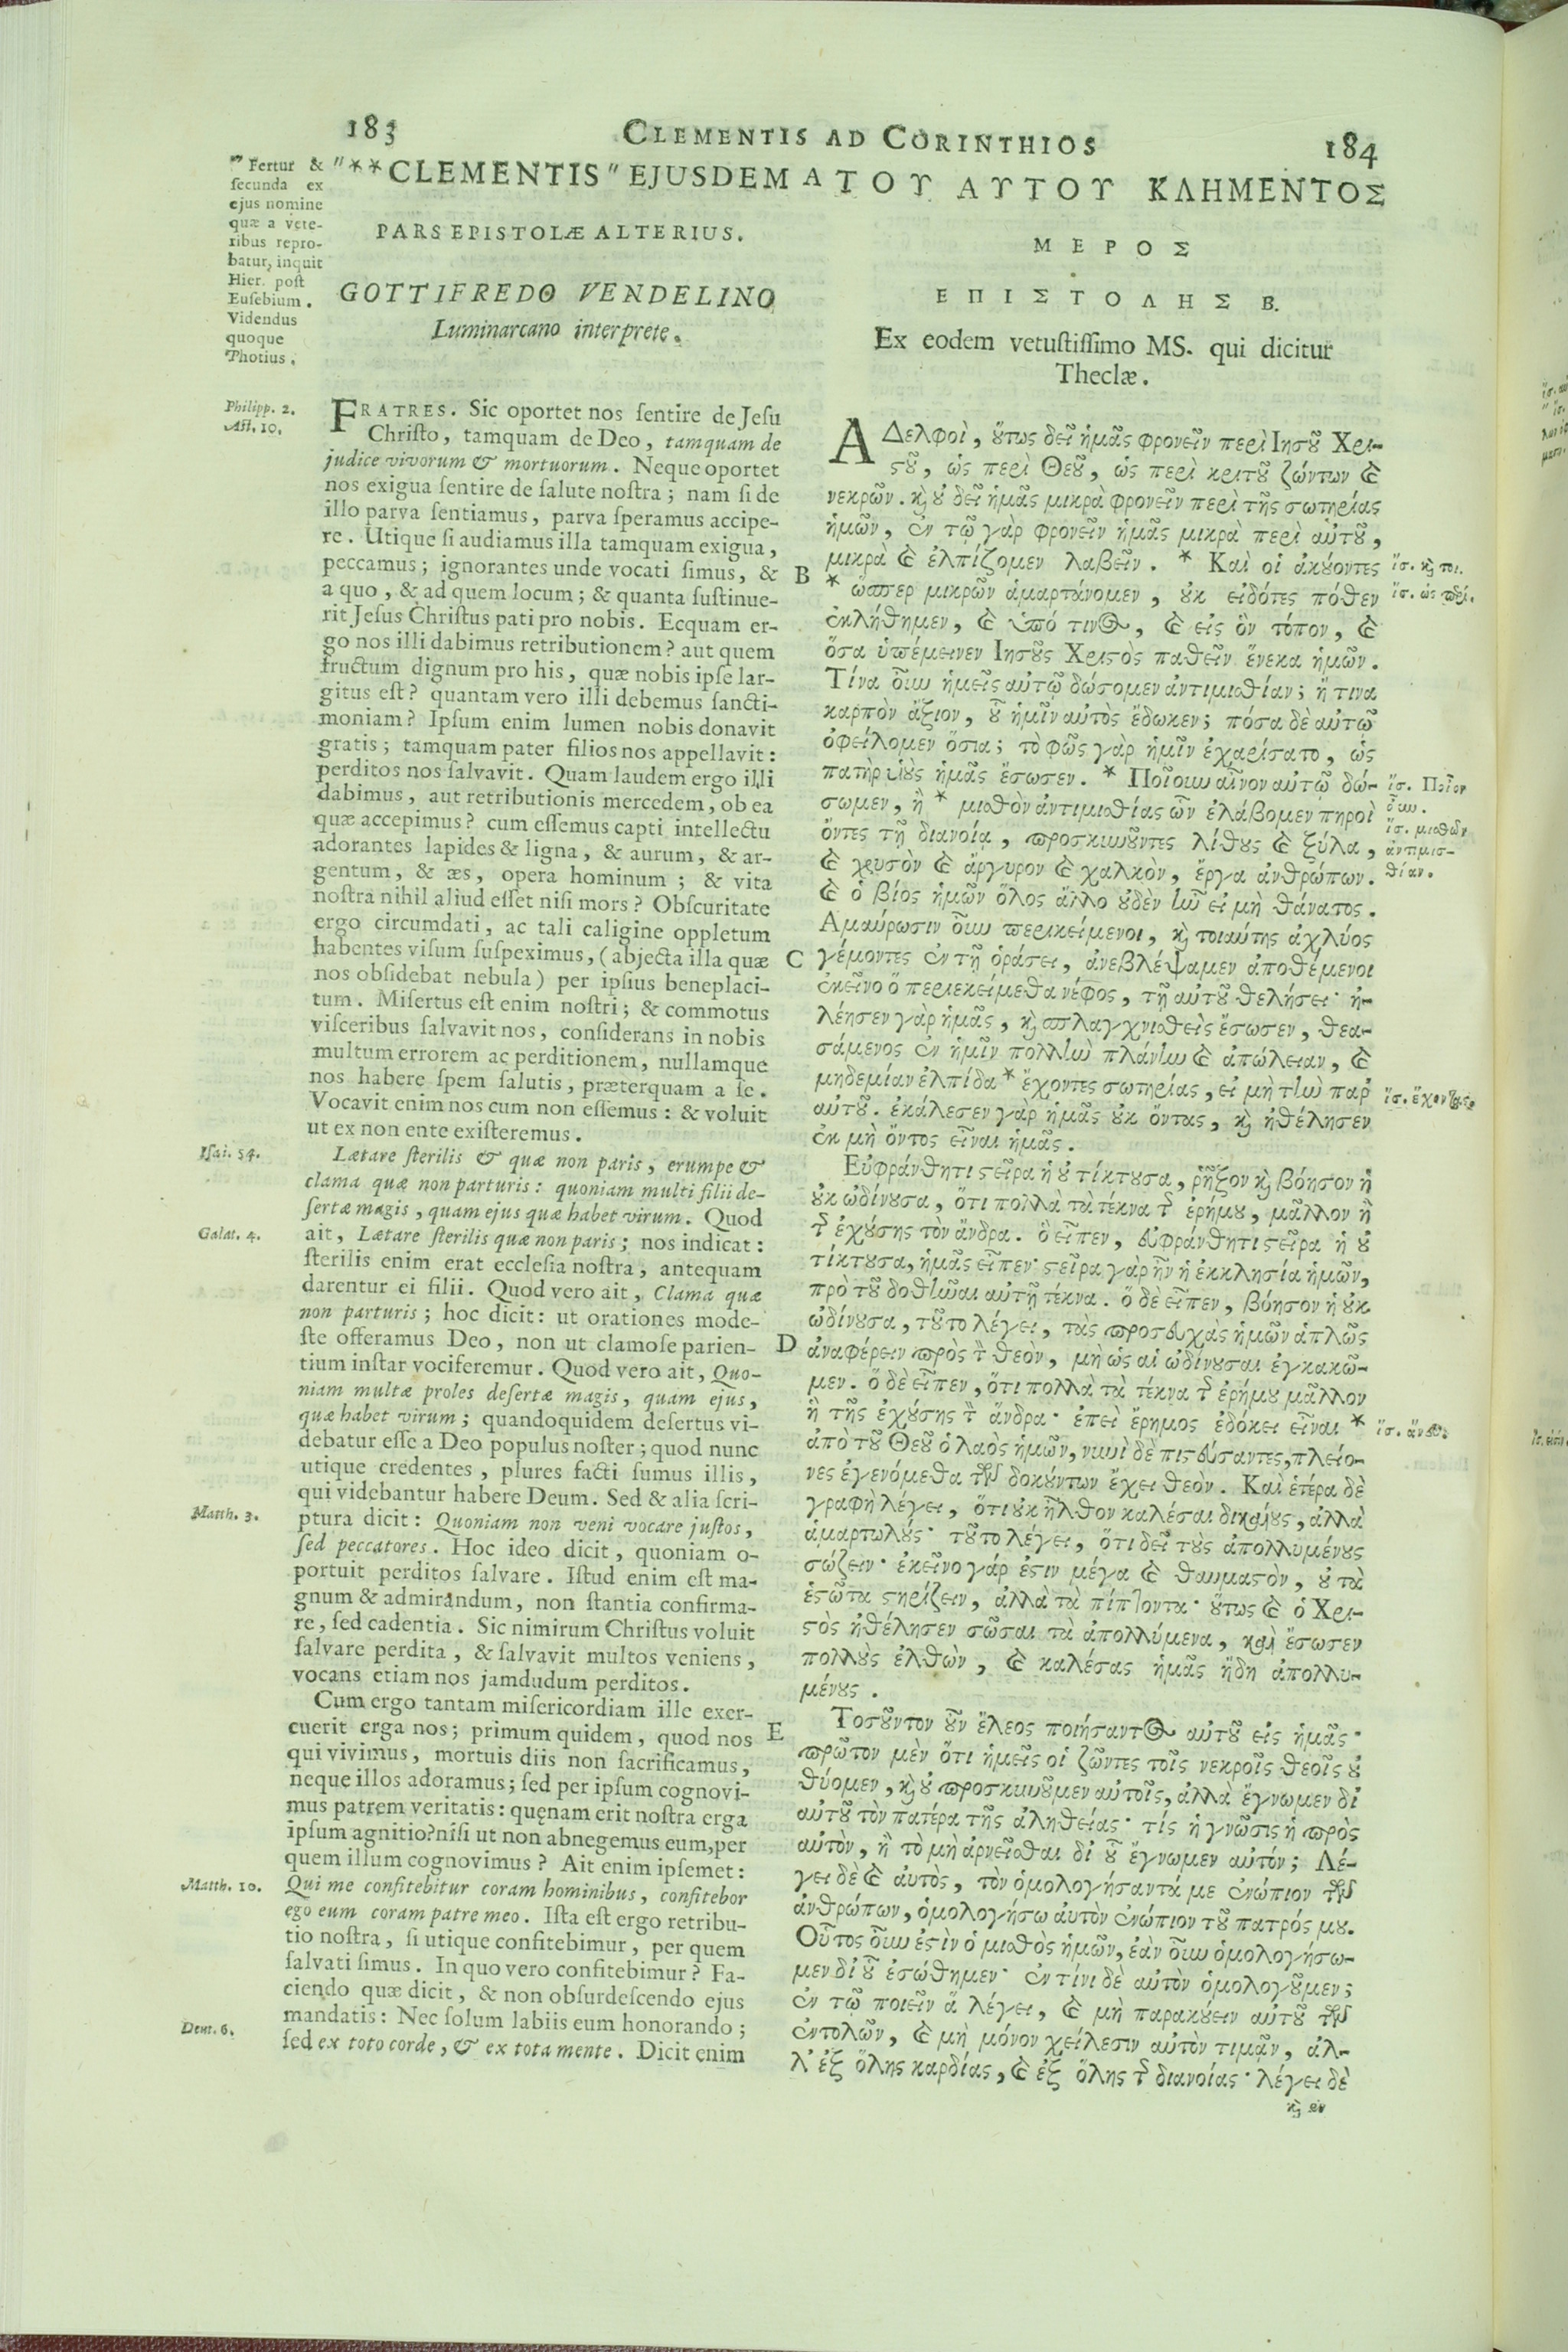 183 CLEMENTIS AD CORINTHIOS 184
"** CLEMENTIS " EJUSDEM
PARS EPISTOLÆ ALTERIUS.
GOTTIFREDO VENDELINO
Luminarcano interprete.
"" Fertur &
secunda ex
ejus nomine
quæ a vete-
ribus repro-
batur, inquit
Hier. post
Eusebium.
Videndus
quoque
Photius.
Philipp. 2.
Act. 10.
FRATRES. Sic oportet nos sentire de Jesu
Christo, tamquam de Deo, tamquam de
judice vivorum & mortuorum. Neque oportet
nos exigua sentire de salute nostra; nam si de
illo parva sentiamus, parva speramus accipe-
re. Utique si audiamus illa tamquam exigua,
peccamus; ignorantes unde vocati simus, &
a quo, & ad quem locum; & quanta sustinue-
rit Jesus Christus pati pro nobis. Ecquam er-
go nos illi dabimus retributionem? aut quem
fructum dignum pro his, quæ nobis ipse lar-
gitus est? quantam vero illi debemus sancti-
moniam? Ipsum enim lumen nobis donavit
gratis; tamquam pater filios nos appellavit:
perditos nos salvavit. Quam laudem ergo illi
dabimus, aut retributionis mercedem, ob ea
quæ accepimus? cum essemus capti intellectu
adorantes lapides & ligna, & aurum, & ar-
gentum, & æs, opera hominum; & vita
nostra nihil aliud esset nisi mors? Obscuritate
ergo circumdati, ac tali caligine oppletum
habentes visum suspeximus, (abjecta illa quæ
nos obsidebat nebula) per ipsius beneplaci-
tum. Misertus est enim nostri; & commotus
visceribus salvavit nos, considerans in nobis
multum errorem ac perditionem, nullamque
nos habere spem salutis, præterquam a se.
Vocavit enim nos cum non essemus: & voluit
ut ex non ente existeremus.
Isai. 54.
Lætare sterilis & quæ non paris, erumpe &
clama quæ non parturis: quoniam multi filii de-
sertæ magis, quam ejus quæ habet virum. Quod
Galat. 4.
ait, Lætare sterilis quæ non paris; nos indicat:
sterilis enim erat ecclesia nostra, antequam
darentur ei filii. Quod vero ait, Clama quæ
non parturis; hoc dicit: ut orationes mode-
ste offeramus Deo, non ut clamose parien-
tium instar vociferemur. Quod vero ait, Quo-
niam multæ proles desertæ magis, quam ejus,
quæ habet virum; quandoquidem desertus vi-
debatur esse a Deo populus noster; quod nunc
utique credentes, plures facti sumus illis,
qui videbantur habere Deum. Sed & alia scri-
Matth. 3.
ptura dicit: Quoniam non veni vocare justos,
sed peccatores. Hoc ideo dicit, quoniam o-
portuit perditos salvare. Istud enim est ma-
gnum & admirandum, non stantia confirma-
re, sed cadentia. Sic nimirum Christus voluit
salvare perdita, & salvavit multos veniens,
vocans etiam nos jamdudum perditos.
Cum ergo tantam misericordiam ille exer-
cuerit erga nos; primum quidem, quod nos
qui vivimus, mortuis diis non sacrificamus,
neque illos adoramus; sed per ipsum cognovi-
mus patrem veritatis: quęnam erit nostra erga
ipsum agnitio? nisi ut non abnegemus eum, per
quem illum cognovimus? Ait enim ipsemet:
Matth. 10.
Qui me confitebitur coram hominibus, confitebor
ego eum coram patre meo. Ista est ergo retribu-
tio nostra, si utique confitebimur, per quem
salvati simus. In quo vero confitebimur? Fa-
ciendo quæ dicit, & non obsurdescendo ejus
mandatis: Nec solum labiis eum honorando;
Deut. 6.
sed ex toto corde, & ex tota mente. Dicit enim
A
B
C
D
E
ΤΟΥ ΑΥΤΟΥ ΚΛΗΜΕΝΤΟΣ
ΜΕΡΟΣ
ΕΠΙΣΤΟΛΗΣ Β.
Ex eodem vetustissimo MS. qui dicitur
Theclæ.
ΑΔελφοὶ, ὅτως δεῖ ἡμᾶς φρονεῖν περὶ Ιησοῦ Χρι-
στοῦ, ὡς περὶ Θεοῦ, ὡς περὶ κριτοῦ ζώντων καὶ
νεκρῶν. καὶ οὐ δεῖ ἡμᾶς μικρὰ φρονεῖν περὶ τῆς σωτηρίας
ἡμῶν, ἐν τῷ γὰρ φρονεῖν ἡμᾶς μικρὰ περὶ αὐτοῦ,
μικρὰ καὶ ἐλπίζομεν λαβεῖν. * Καὶ οἱ ἀκούοντες
* ὥσπερ μικρῶν ἁμαρτάνομεν, οὐκ εἰδότες πόθεν
ἐκλήθημεν, καὶ ὑπό τινος, καὶ εἰς ὃν τόπον, καὶ
ὅσα ὑπέμεινεν Ιησοῦς Χριστὸς παθεῖν ἕνεκα ἡμῶν.
Τίνα οὖν ἡμεῖς αὐτῷ δώσομεν ἀντιμισθίαν; ἤ τινα
καρπὸν ἄξιον, οὗ ἡμῖν αὐτὸς ἔδωκεν; πόσα δὲ αὐτῷ
ὀφείλομεν ὅσια; τὸ φῶς γὰρ ἡμῖν ἐχαρίσατο, ὡς
πατὴρ υἱοὺς ἡμᾶς ἔσωσεν. * Ποῖουν αἶνον αὐτῷ δώ-
σωμεν, ἢ * μισθὸν ἀντιμισθίας ὧν ἐλάβομεν πηροὶ
ὄντες τῇ διανοίᾳ, προσκυνοῦντες λίθους καὶ ξύλα,
καὶ χρυσὸν καὶ ἄργυρον καὶ χαλκὸν, ἔργα ἀνθρώπων.
καὶ ὁ βίος ἡμῶν ὅλος ἄλλο οὐδὲν ἦν εἰ μὴ θάνατος.
Αμαύρωσιν οὖν περικείμενοι, καὶ τοιαύτης ἀχλύος
γέμοντες ἐν τῇ ὁράσει, ἀνεβλέψαμεν ἀποθέμενοι
ἐκεῖνο ὃ περιεκείμεθα νέφος, τῇ αὐτοῦ θελήσει· ἠ-
λέησεν γὰρ ἡμᾶς, καὶ σπλαγχνισθεὶς ἔσωσεν, θεα-
σάμενος ἐν ἡμῖν πολλὴν πλάνην καὶ ἀπώλειαν, καὶ
μηδεμίαν ἐλπίδα * ἔχοντες σωτηρίας, εἰ μὴ τὴν παρ'
αὐτοῦ. ἐκάλεσεν γὰρ ἡμᾶς οὐκ ὄντας, καὶ ἠθέλησεν
ἐκ μὴ ὄντος εἶναι ἡμᾶς.
Εὐφράνθητι στεῖρα ἡ οὐ τίκτουσα, ῥῆξον καὶ βόησον ἡ
οὐκ ὠδίνουσα, ὅτι πολλὰ τὰ τέκνα τῆς ἐρήμου, μᾶλλον ἢ
τῆς ἐχούσης τὸν ἄνδρα. ὃ εἶπεν, εὐφράνθητι στεῖρα ἡ οὐ
τίκτουσα, ἡμᾶς εἶπεν· στεῖρα γὰρ ἦν ἡ ἐκκλησία ἡμῶν,
πρὸ τοῦ δοθῆναι αὐτῇ τέκνα. ὃ δὲ εἶπεν, βόησον ἡ οὐκ
ὠδίνουσα, τοῦτο λέγει, τὰς προσευχὰς ἡμῶν ἁπλῶς
ἀναφέρειν πρὸς τὸν θεὸν, μὴ ὡς αἱ ὠδίνουσαι ἐγκακῶ-
μεν. ὃ δὲ εἶπεν, ὅτι πολλὰ τὰ τέκνα τῆς ἐρήμου μᾶλλον
ἢ τῆς ἐχούσης τὸν ἄνδρα· ἐπεὶ ἔρημος ἐδόκει εἶναι *
ἀπὸ τοῦ Θεοῦ ὁ λαὸς ἡμῶν, νυνὶ δὲ πιστεύσαντες, πλείο-
νες ἐγενόμεθα τῶν δοκούντων ἔχει θεὸν. Καὶ ἑτέρα δὲ
γραφὴ λέγει, ὅτι οὐκ ἦλθον καλέσαι δικαίους, ἀλλὰ
ἁμαρτωλούς· τοῦτο λέγει, ὅτι δεῖ τοὺς ἀπολλυμένους
σώζειν· ἐκεῖνο γάρ ἐστιν μέγα καὶ θαυμαστὸν, οὐ τὰ
ἑστῶτα στηρίζειν, ἀλλὰ τὰ πίπτοντα· οὕτως καὶ ὁ Χρι-
στὸς ἠθέλησεν σῶσαι τὰ ἀπολλύμενα, καὶ ἔσωσεν
πολλοὺς ἐλθὼν, καὶ καλέσας ἡμᾶς ἤδη ἀπολλυ-
μένους.
Τοσοῦντον οὖν ἔλεος ποιήσαντος αὐτοῦ εἰς ἡμᾶς·
πρῶτον μὲν ὅτι ἡμεῖς οἱ ζῶντες τοῖς νεκροῖς θεοῖς οὐ
θύομεν, καὶ οὐ προσκυνοῦμεν αὐτοῖς, ἀλλὰ ἔγνωμεν δι'
αὐτοῦ τὸν πατέρα τῆς ἀληθείας· τίς ἡ γνῶσις ἡ πρὸς
αὐτὸν, ἢ τὸ μὴ ἀρνεῖσθαι δι' οὗ ἔγνωμεν αὐτόν; Λέ-
γει δὲ καὶ αὐτὸς, τὸν ὁμολογήσαντά με ἐνώπιον τῶν
ἀνθρώπων, ὁμολογήσω αὐτὸν ἐνώπιον τοῦ πατρός μου.
Οὗτος οὖν ἐστὶν ὁ μισθὸς ἡμῶν, ἐὰν οὖν ὁμολογήσω-
μεν δι' οὗ ἐσώθημεν· ἐν τίνι δὲ αὐτὸν ὁμολογοῦμεν;
ἐν τῷ ποιεῖν ἃ λέγει, καὶ μὴ παρακούειν αὐτοῦ τῶν
ἐντολῶν, καὶ μὴ μόνον χείλεσιν αὐτὸν τιμᾷν, ἀλ-
λ' ἐξ ὅλης καρδίας, καὶ ἐξ ὅλης τῆς διανοίας· λέγει δὲ
καὶ ἐν
ἴσ. καὶ τοι.
ἴσ. ὡς περὶ.
ἴσ. Ποῖον
οὖν.
ἴσ. μισθῶν
ἀντιμισ-
θίαν.
ἴσ. ἔχοντας.